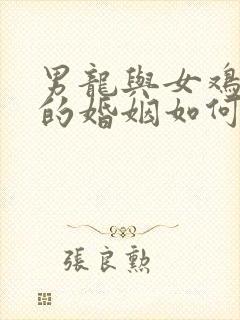 男龍與女鸡
的婚姻如何
張良勲